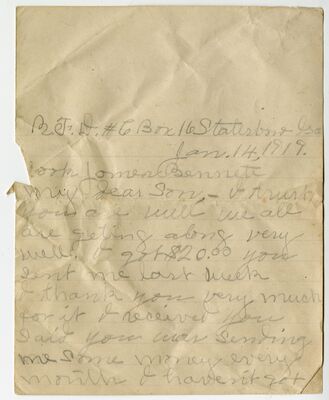 R.F.D. #6 Box 16 Statesboro Ga
Jan. 14, 1919.
Cook Lomen Bennett
My dear Son, - I trust
you are well we all
are geting along very
well. I got $20.00 you
sent me last week
I thank you very much
for it I receved you
said you was sending
me some money every
month I havent got